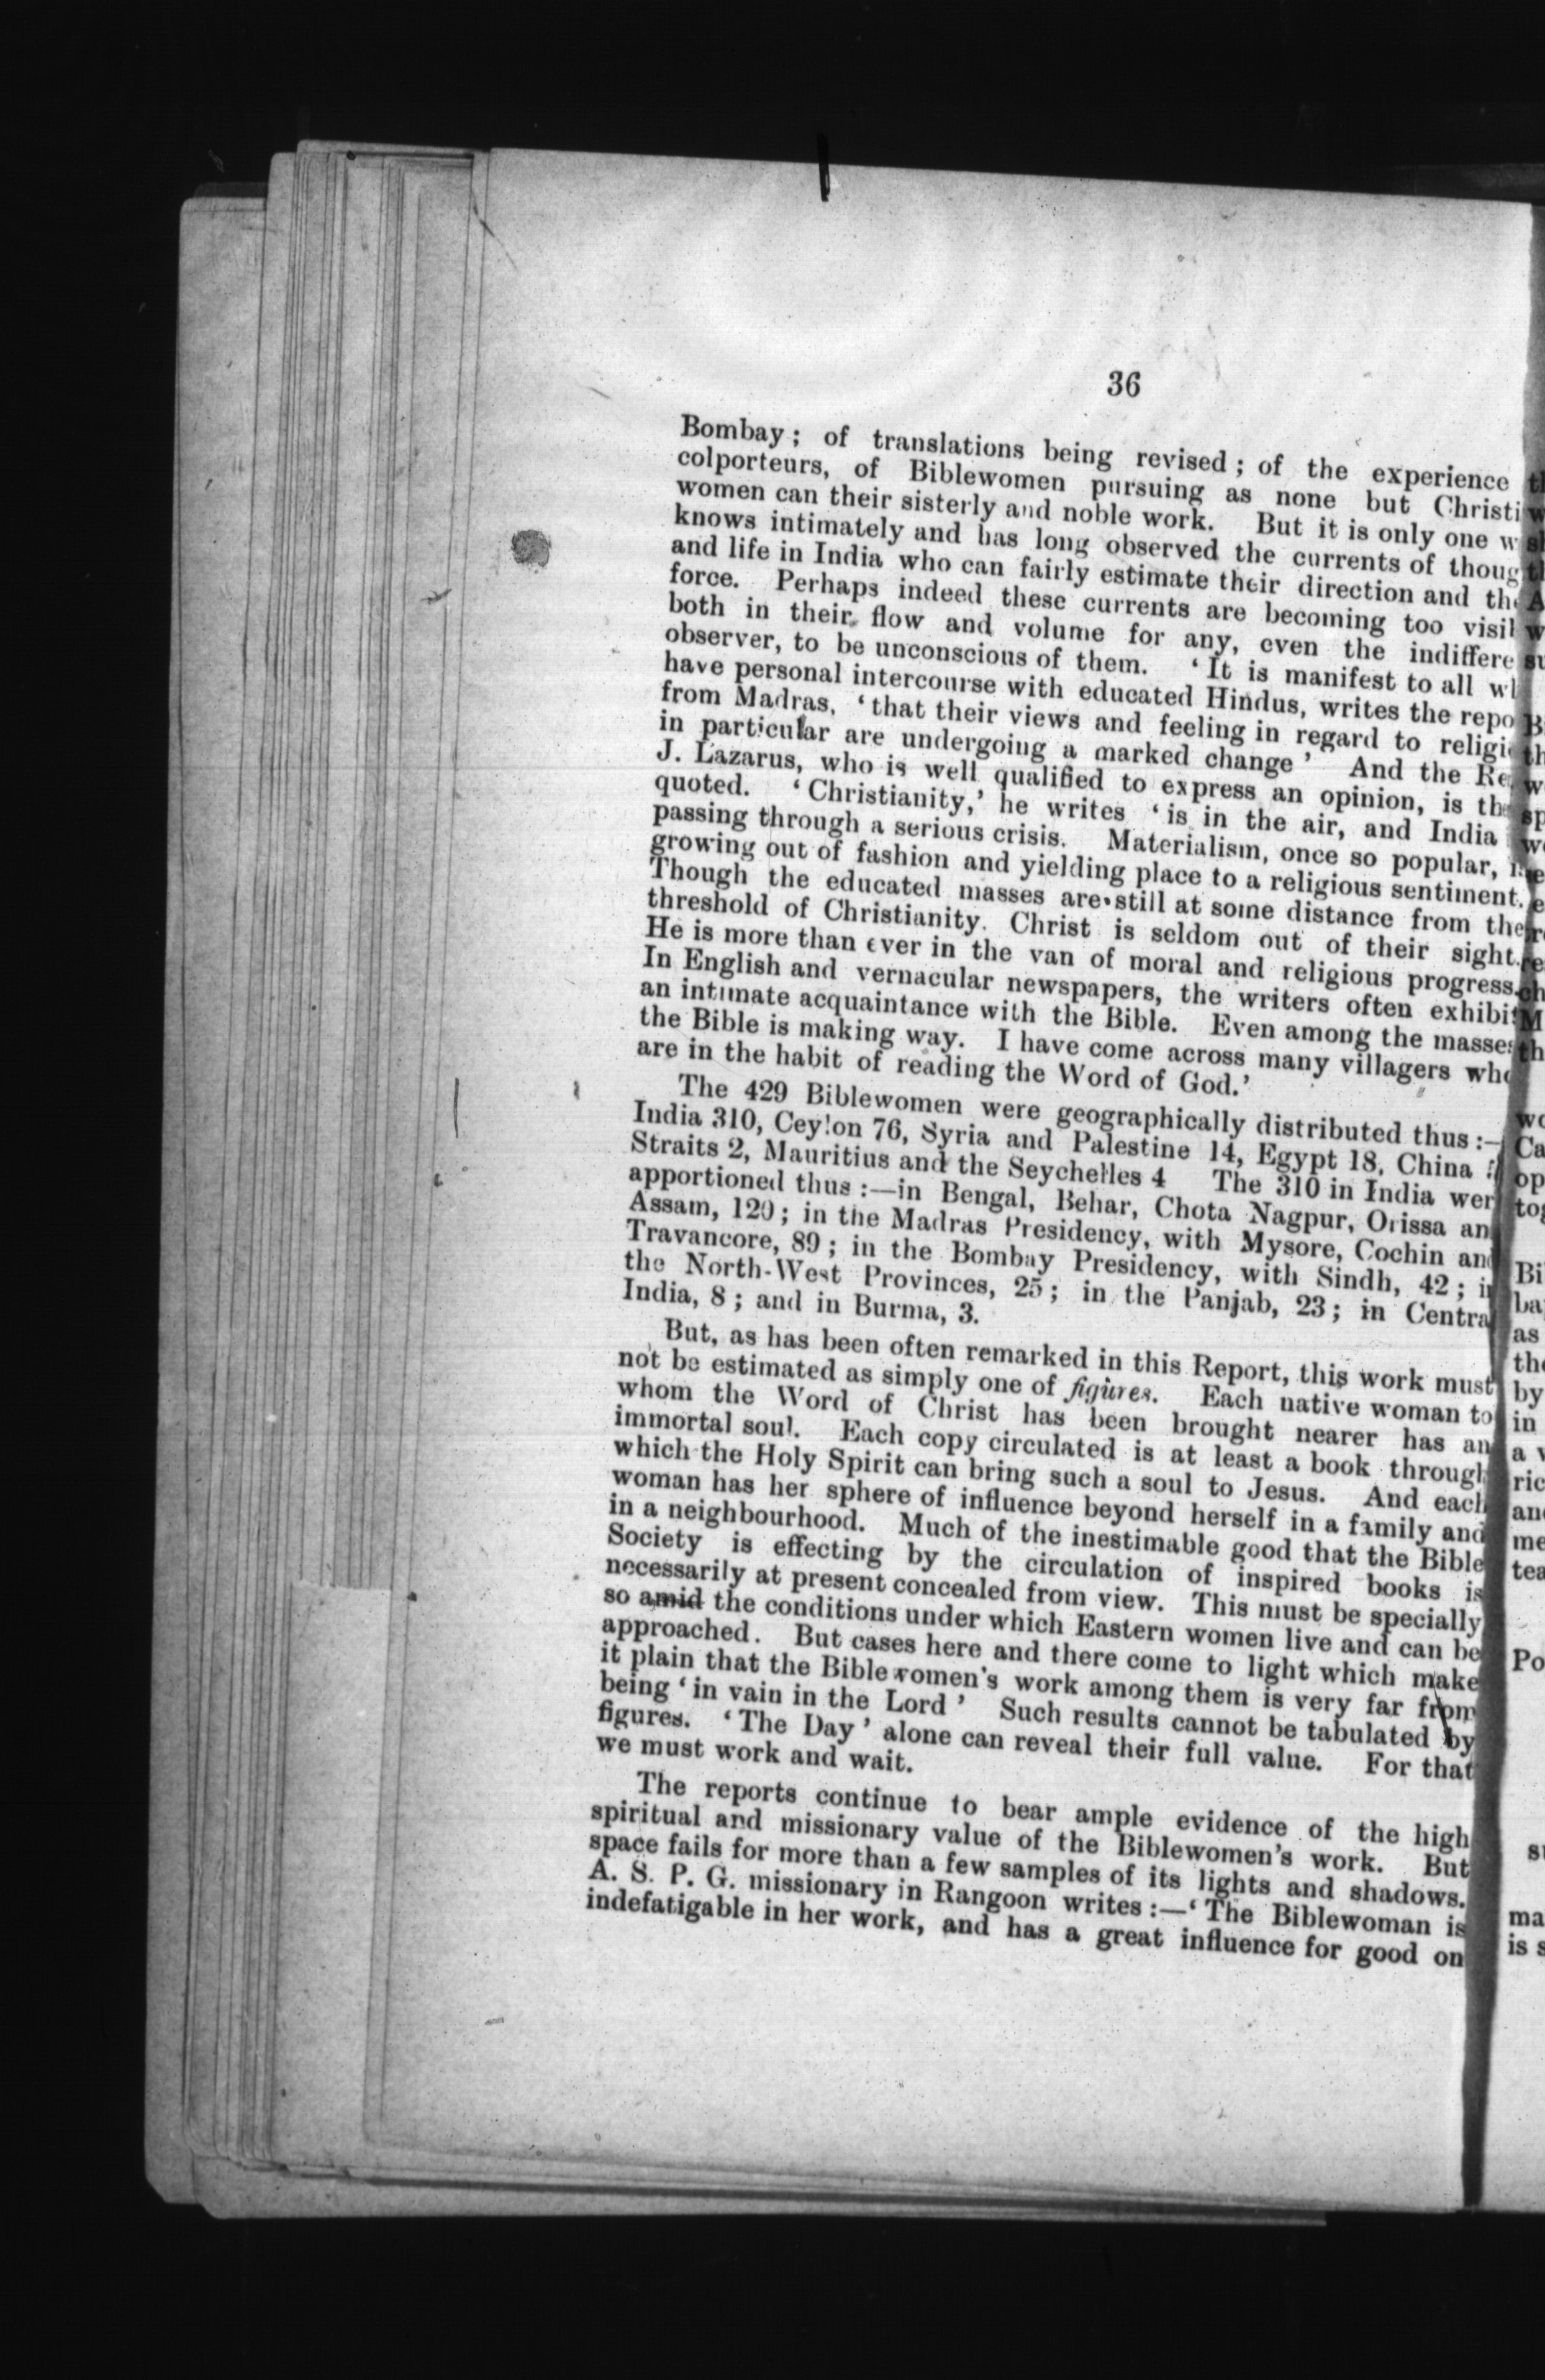 36
Bombay; of translations being revised; of the experience
colporteurs, of Biblewomen pursuing as none but Christi
women can their sisterly and noble work. But it is only one w
knows intimately and has long observed the currents of thoug
and life in India who can fairly estimate their direction and the
force. Perhaps indeed these currents are becoming too visil
both in their flow and volume for any, even the indiffere
observer, to be unconscious of them. ‘It is manifest to all wl
have personal intercourse with educated Hindus, writes the repo
from Madras, ‘that their views and feeling in regard to religi
in particular are undergoing a marked change’ And the Re
J. Lazarus, who is well qualified to express an opinion, is th
quoted. ‘Christianity,’ he writes ‘is in the air, and India
passing through a serious crisis. Materialism, once so popular,
growing out of fashion and yielding place to a religious sentiment.
Though the educated masses are still at some distance from the
threshold of Christianity. Christ is seldom out of their sight.
He is more than ever in the van of moral and religious progress.
In English and vernacular newspapers, the writers often exhibi
an intimate acquaintance with the Bible. Even among the masses
the Bible is making way. I have come across many villagers who
are in the habit of reading the Word of God.’
The 429 Biblewomen were geographically distributed thus:—
India 310, Ceylon 76, Syria and Palestine 14, Egypt 18, China
Straits 2, Mauritius and the Seychelles 4 The 310 in India wer
apportioned thus:—in Bengal, Behar, Chota Nagpur, Orissa an
Assam, 120; in the Madras Presidency, with Mysore, Cochin and
Travancore, 89; in the Bombay Presidency, with Sindh, 42; i
the North-West Provinces, 25; in the Panjab, 23; in Centra
India, 8; and in Burma, 3.
But, as has been often remarked in this Report, this work must
not be estimated as simply one of figures. Each native woman to
whom the Word of Christ has been brought nearer has an
immortal soul. Each copy circulated is at least a book through
which the Holy Spirit can bring such a soul to Jesus. And each
woman has her sphere of influence beyond herself in a family and
in a neighbourhood. Much of the inestimable good that the Bible
Society is effecting by the circulation of inspired books is
necessarily at present concealed from view. This must be specially
so amid the conditions under which Eastern women live and can be
approached. But cases here and there come to light which make
it plain that the Biblewomen's work among them is very far from
being ‘in vain in the Lord’ Such results cannot be tabulated by
figures. ‘The Day’ alone can reveal their full value. For that
we must work and wait.
The reports continue to bear ample evidence of the high
spiritual and missionary value of the Biblewomen's work. But
space fails for more than a few samples of its lights and shadows.
A. S. P. G. missionary in Rangoon writes:—‘The Biblewoman is
indefatigable in her work, and has a great influence for good on